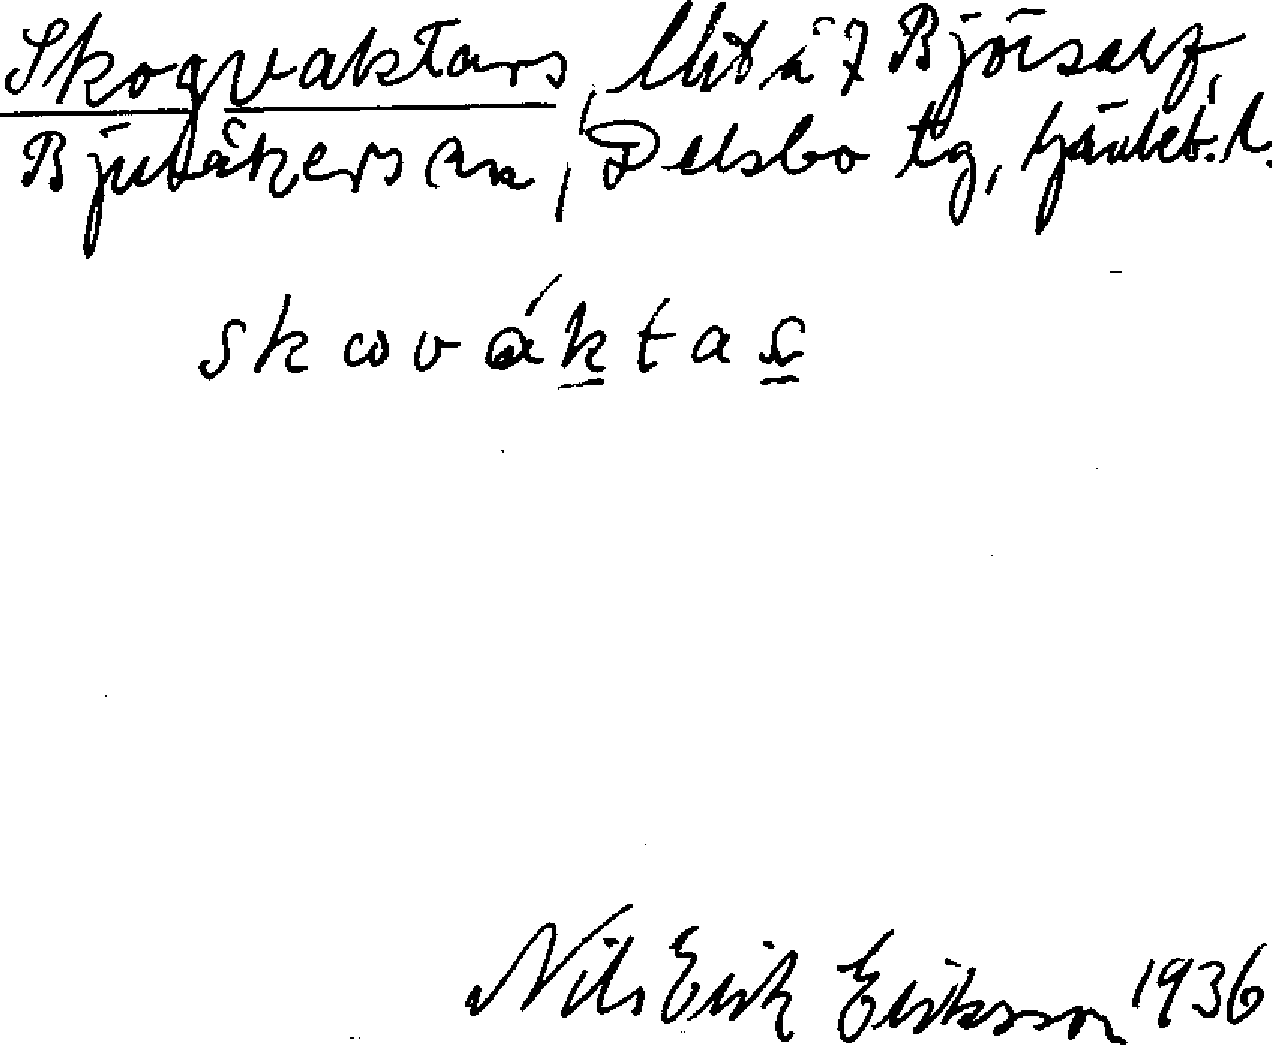 Skogvaktars, lht å 7 Björsarf,
Bjuråkers sn, Delsbo tg, Gävleb. l.
skovàktaș
Nils Erik Eriksson 1936